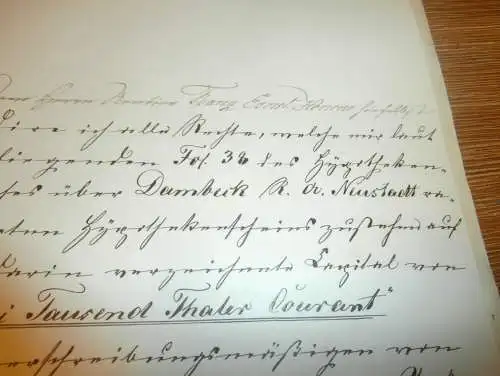 Herrn Rentier Franz hierselbst
dire ich alle Rechte, welche mir laut
liegenden Fol. 32 des Hypotheken-
ches über Dambeck R. A. Neustadt ra-
eten Hypothekenscheins zustehn auf
darin verzeichnete Capital von
i Tausend Thaler Courant"
erschreibungsmäßigen von